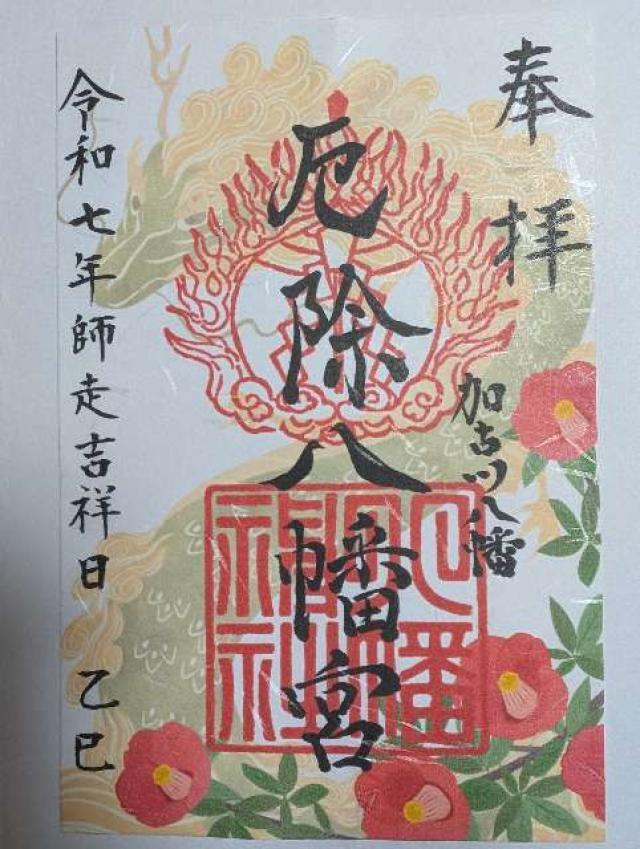 奉拝
加古川八幡
厄除八幡宮
令和七年師走吉祥日 乙巳